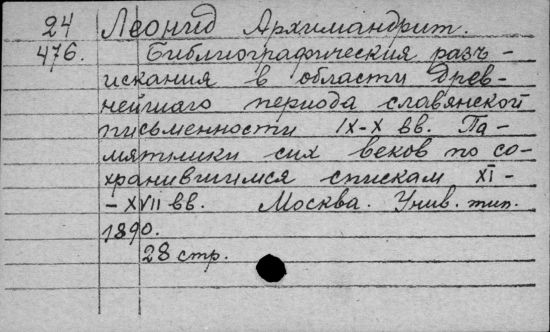 24 Леонид Архимандрит.
476. Библиографическия разъ-
искания в области древ-
нейшаго периода славянской
письменности IX-X вв. Па-
мятники сих веков по со-
хранившимся спискам XI-
-XVII вв. Москва. Унив. тип.
1890.
28 стр.